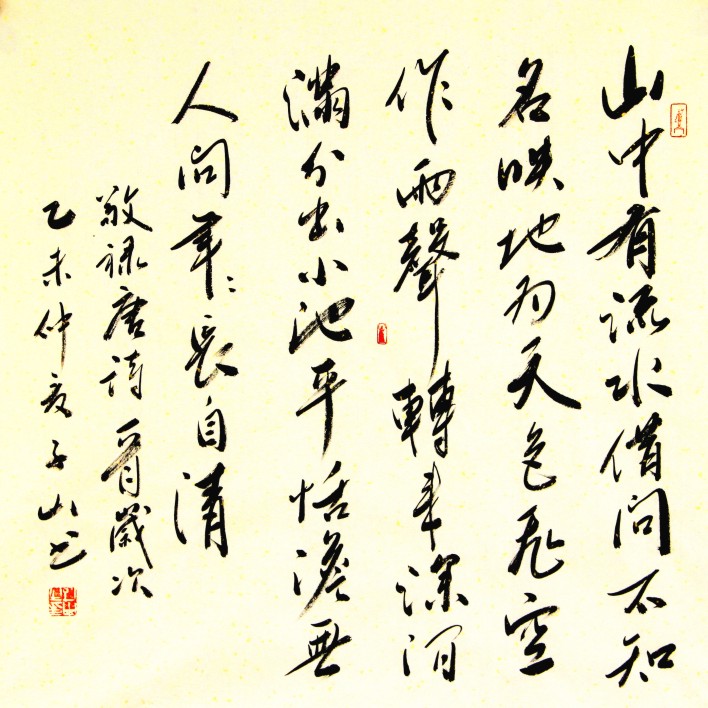 山中有流水借問不知
名映地為天色飛空
作雨聲轉來深澗
滿分出小池平恬澹無
人問年々長自清
敬録唐詩一首歲次
乙未仲夏子山书